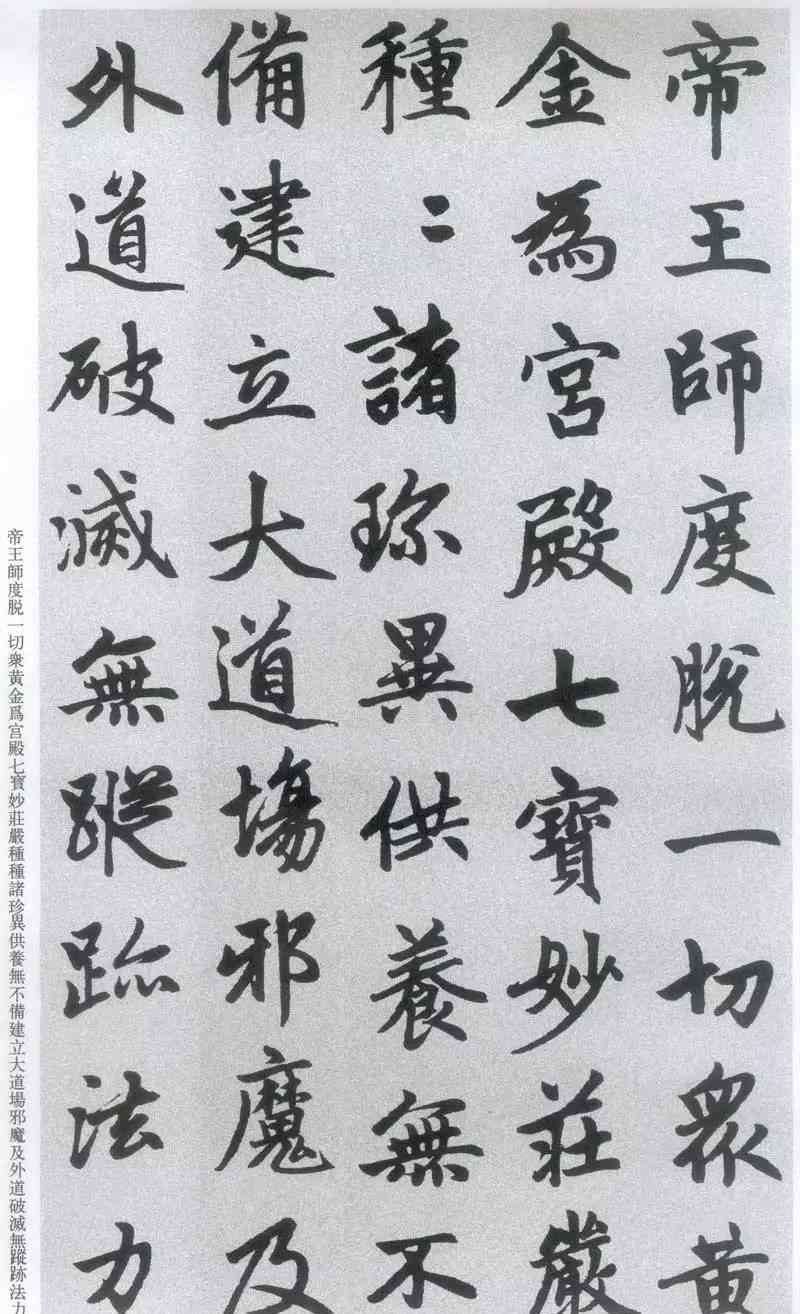 帝王師度脫一切衆黄
金為宮殿七寶妙莊嚴
種〻諸珎異供養無不
備建立大道場邪魔及
外道破滅無蹤跡法力
帝王師度脱一切衆黄金爲宫殿七寶妙莊嚴種種諸珍異供養無不備建立大道場邪魔及外道破滅無蹤跡法力